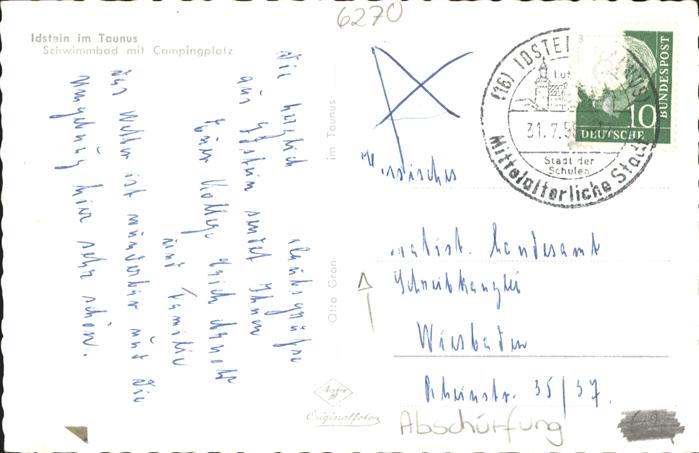 6270
Idstein im Taunus
Schwimmbad mit Campingplatz
Die herzlich
aus Idstein sendet Ihnen
Euer Kollege Erich
und Familie
Das Wetter ist wunderbar und die
Umgebung hier sehr schön.
im Taunus
Otto Gran
Agfa
Originalfoto
(16) IDSTEIN
31.7.
Stadt der
Schulen
Mittelalterliche Stadt
10
DEUTSCHE
BUNDESPOST
Hessisches
Landesamt
Wiesbaden
Rheinstr. 35/37.
Abschürfung